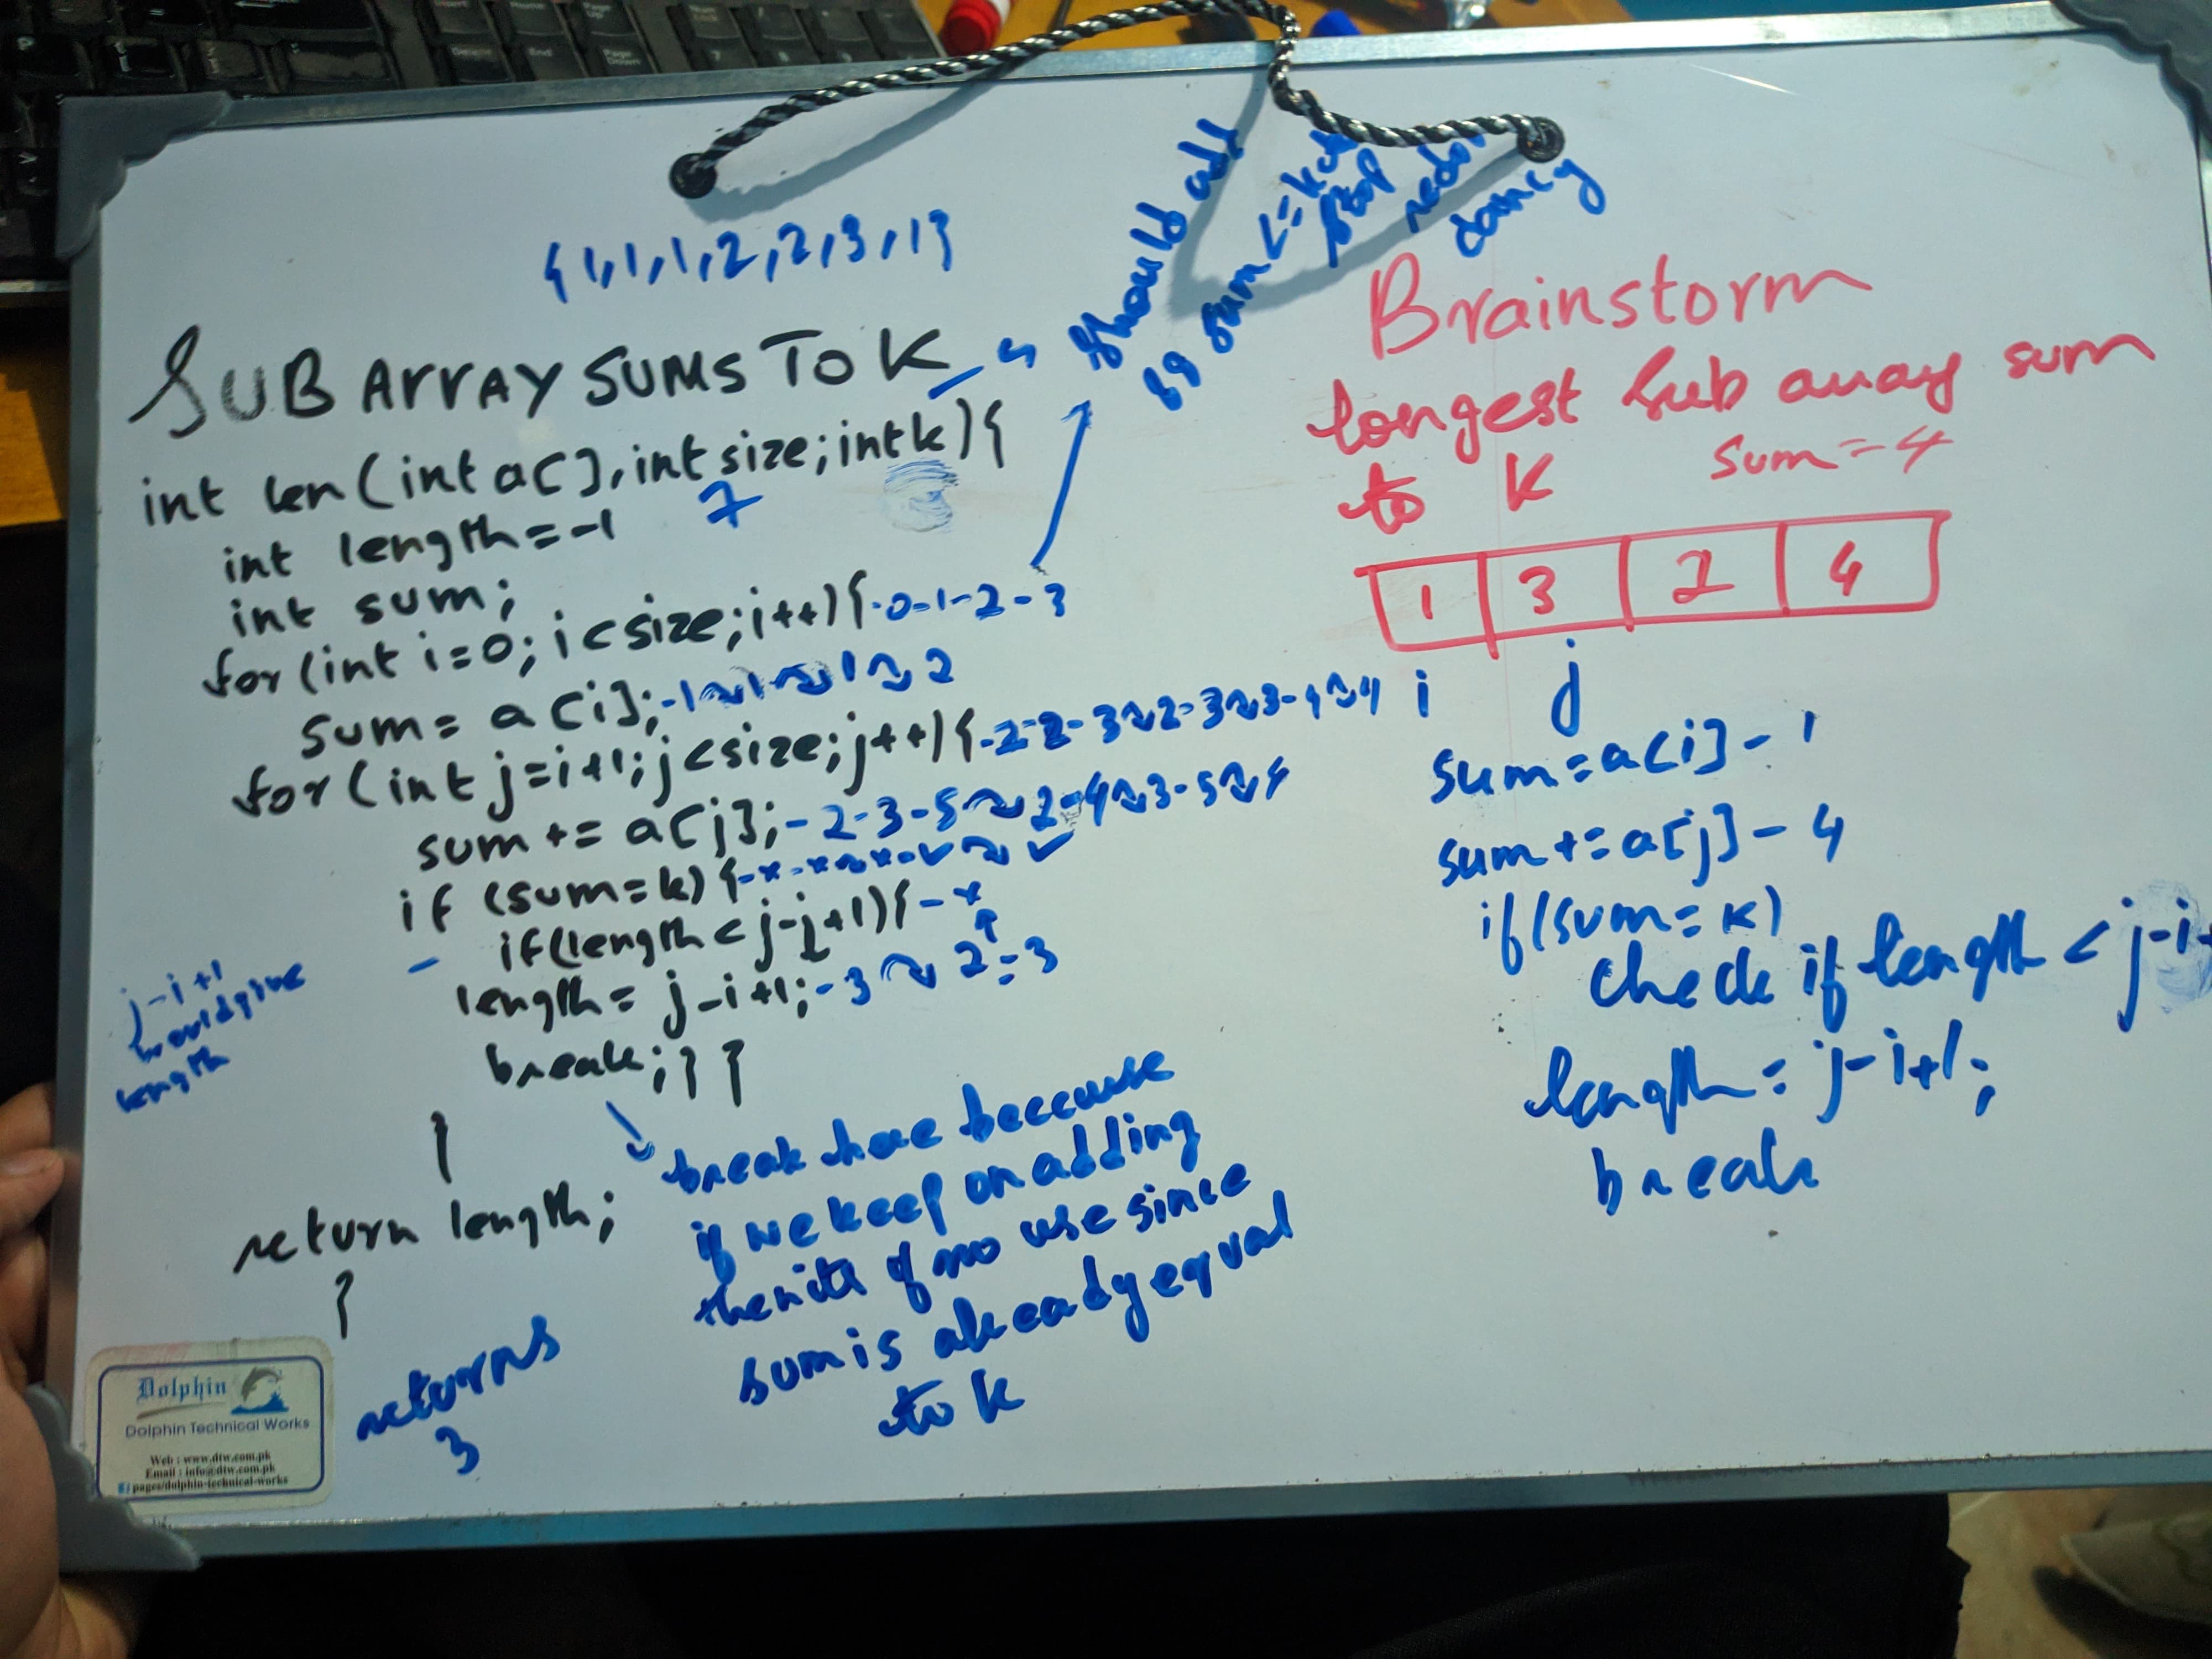 {1,1,1,2,2,3,1}
SUB ARRAY SUMS TO K - 4
int len(int a[], int size; int k){
7
int length = -1
int sum;
for(int i=0; i<size; i++){ -0-1-2-3
sum = a[i]; -1≈1≈1≈2
for(int j=i+1; j<size; j++){ -2-2-3≈2-3≈3-4≈4
sum += a[j]; -2-3-5≈2-4≈3-5≈4
if (sum=k){
if(length < j-j+1){ - x
length = j-i+1; -3 ≈ 2 = 3
break; } }
}
return length;
}
j-i+1
would give
length
returns
3
break here because
if we keep on adding
then its of no use since
sum is already equal
to k
should add
sum <= k
stop
Brainstorm
longest sub array sum
to K sum = 4
1 3 2 4
i j
sum = a[i] - 1
sum += a[j] - 4
if(sum = k)
check if length < j-i+
length = j-i+1;
break
Dolphin
Dolphin Technical Works
Web : www.dtw.com.pk
Email : info@dtw.com.pk
pages/dolphin-technical-works
7
Insert
Home
Page Up
Delete
End
Page Down
P
L
V